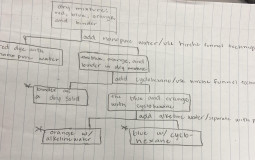 dry mixture:
red, blue, orange,
and binder
add nanopure water/via Hirsch funnel
red dye with
nanopure water
blue, orange, and
binder in dry mixture
add cyclohexane/via Hirsch funnel
binder as
a dry solid
the blue and orange
with
cyclohexane
add alkaline water/separate with
orange w/
alkaline water
blue w/ cyclo-
hexane